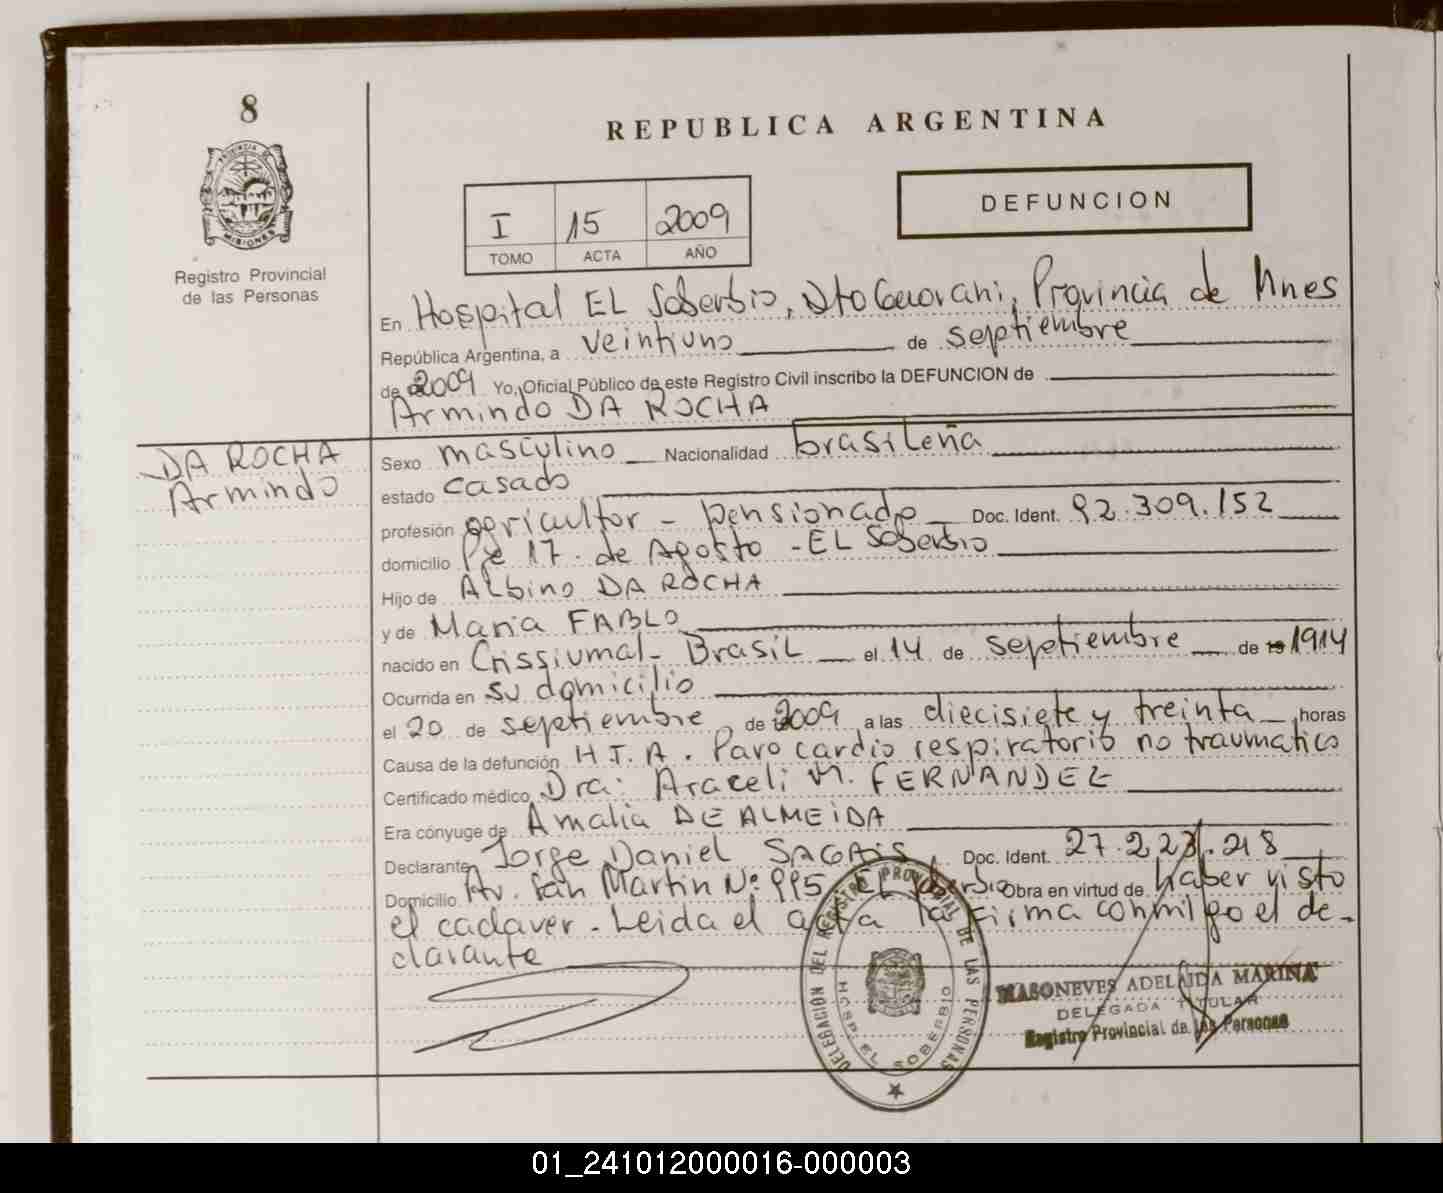 8
REPUBLICA ARGENTINA
PROVINCIA DE
MISIONES
Registro Provincial
de las Personas
DEFUNCION
I 15 2009
TOMO ACTA AÑO
En Hospital EL Soberbio, Dto Guarani, Provincia de Mnes
República Argentina, a veintiuno de septiembre
de 2009 Yo, Oficial Público de este Registro Civil inscribo la DEFUNCION de
Armindo DA ROCHA
DA ROCHA
Armindo
Sexo masculino Nacionalidad brasileña
estado casado
profesión agricultor - pensionado Doc. Ident. 92.309.152
domicilio Pje 17 de Agosto - EL Soberbio
Hijo de Albino DA ROCHA
y de Maria FABLO
nacido en Crissiumal - Brasil el 14 de septiembre de 1914
Ocurrida en su domicilio
el 20 de septiembre de 2009 a las diecisiete y treinta horas
Causa de la defunción H.T.A. Paro cardio respiratorio no traumatico
Certificado médico Dra: Araceli M. FERNANDEZ
Era cónyuge de Amalia DE ALMEIDA
Declarante Jorge Daniel SAGAIS Doc. Ident. 27.223.218
Domicilio Av. San Martin Nº 995 EL Soberbio Obra en virtud de haber visto
el cadaver - Leida el acta la firma conmigo el de-
clarante
DELEGACIÓN DEL REGISTRO PROVINCIAL DE LAS PERSONAS
HOSP. EL SOBERBIO
MASONEVES ADELAIDA MARINA
DELEGADA TITULAR
Registro Provincial de las Personas
01_241012000016-000003